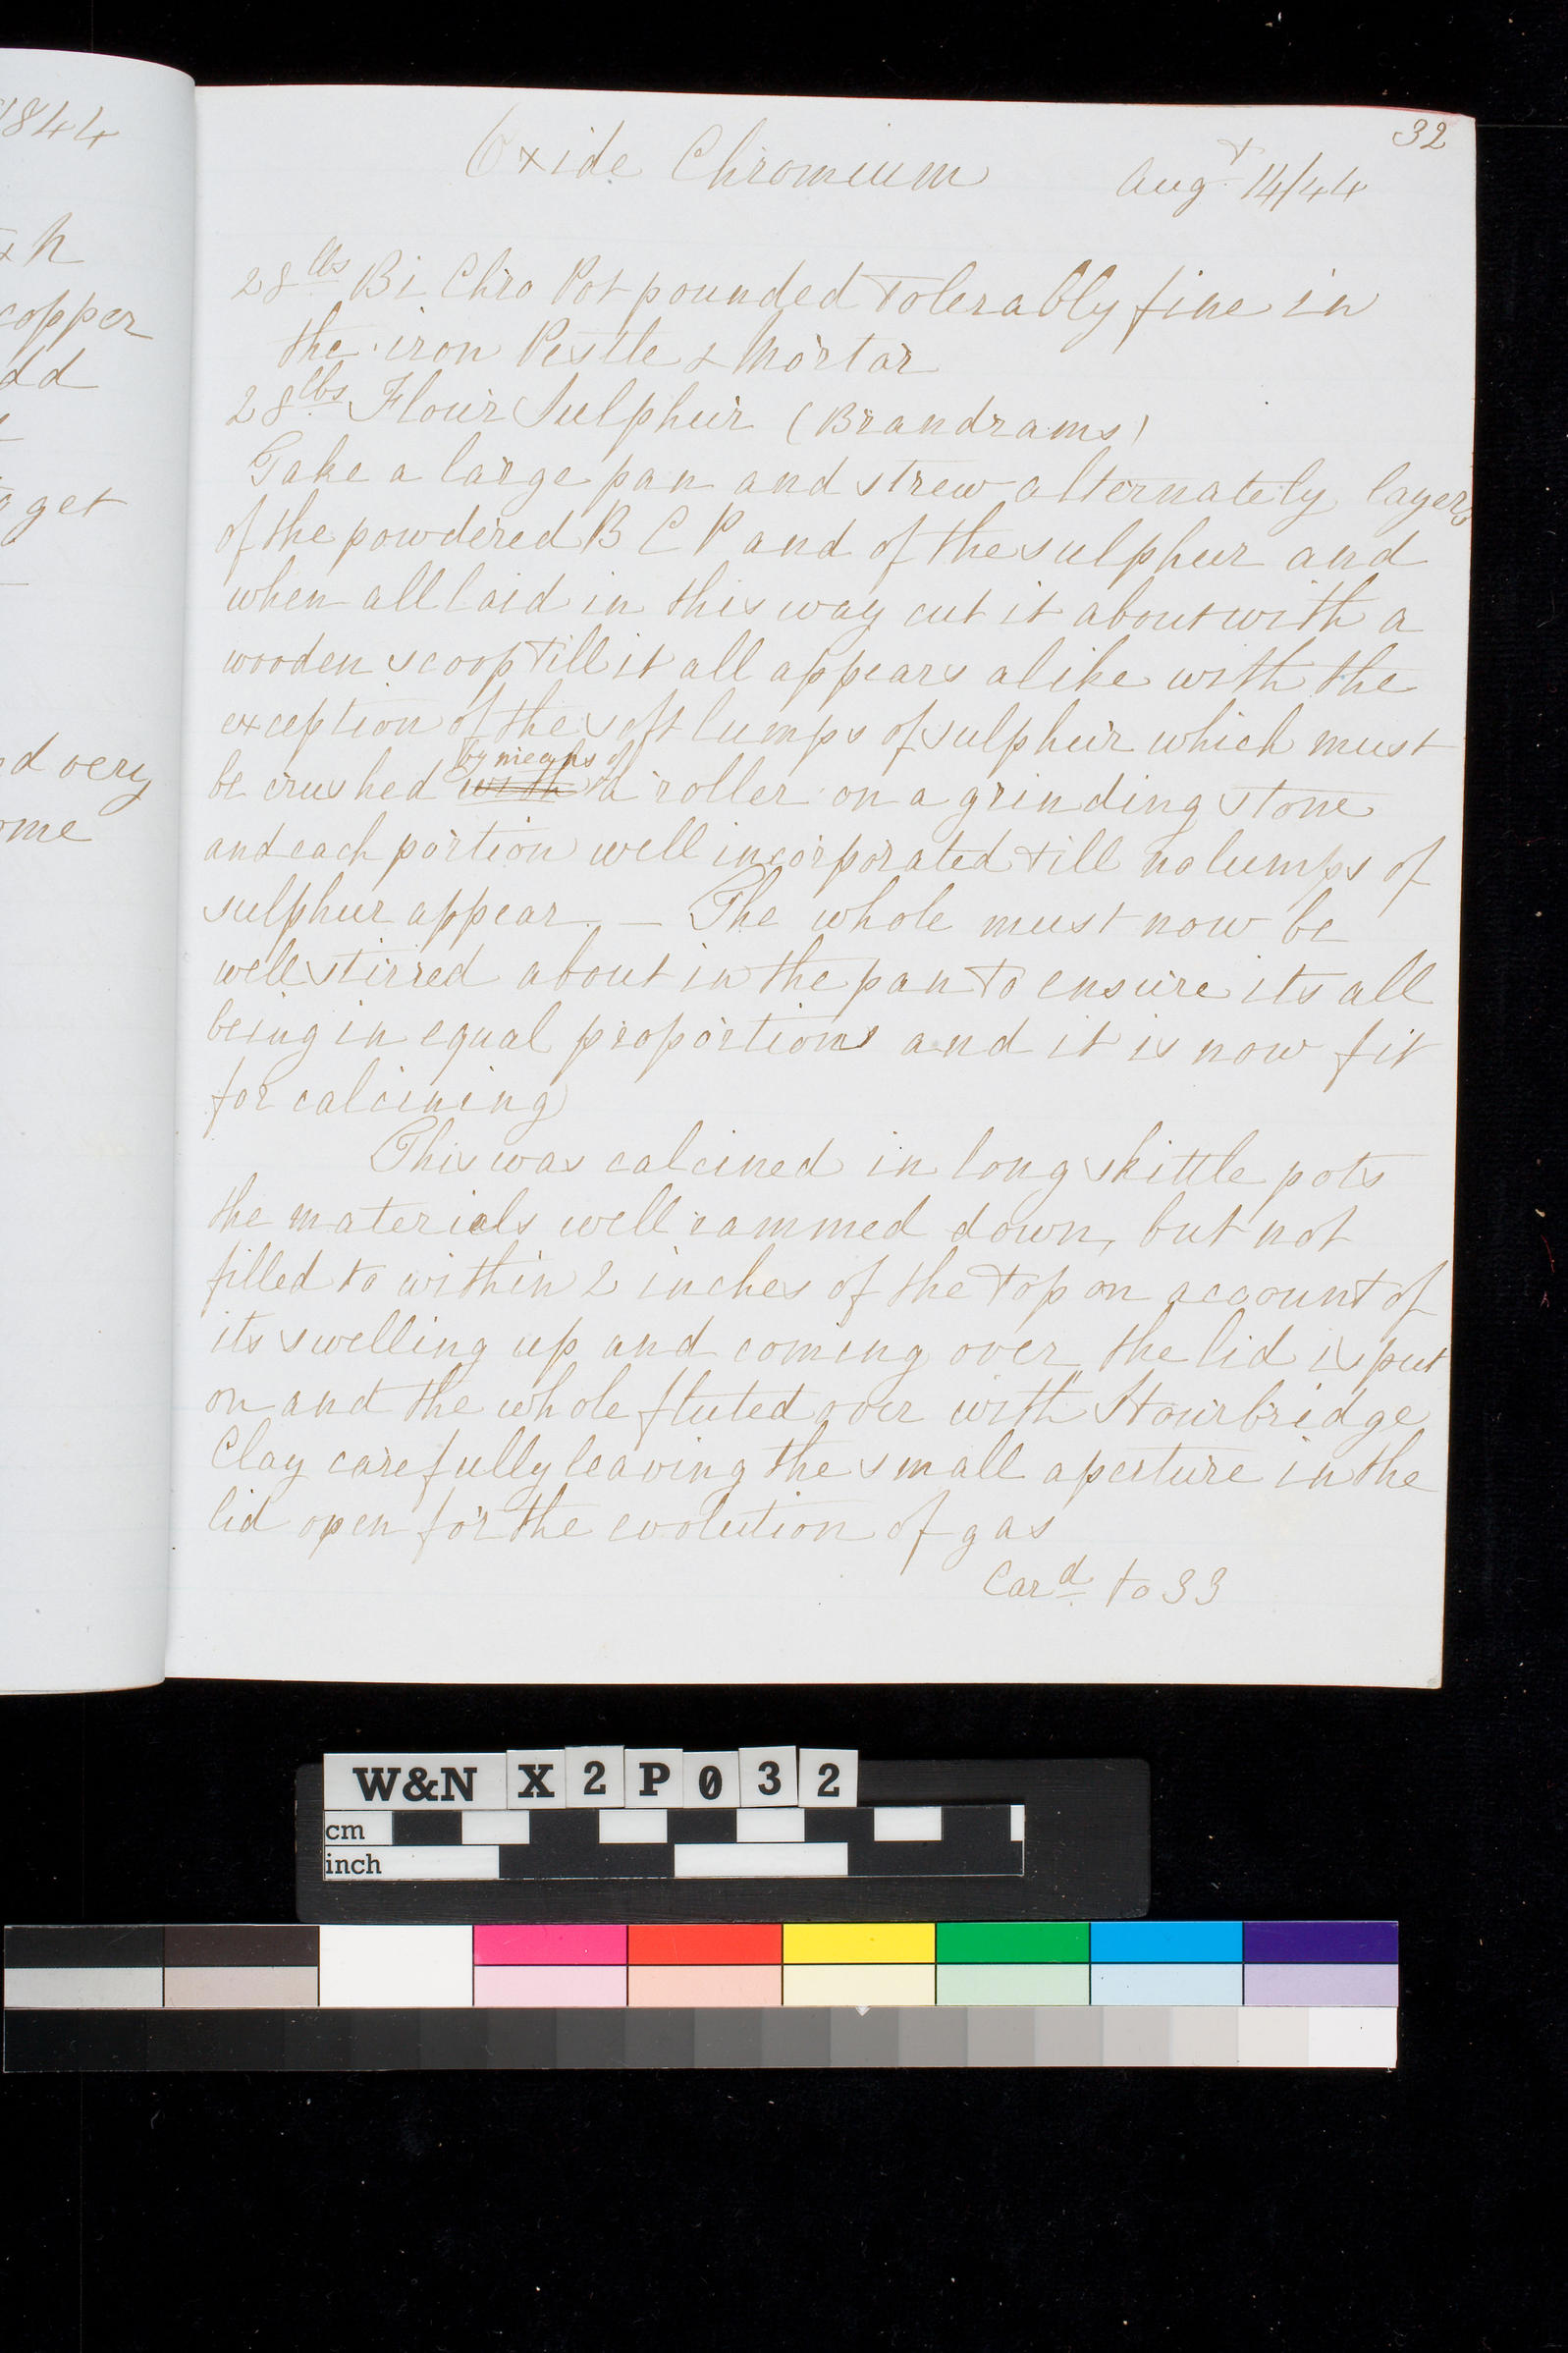 1844
h
copper
dd
get
d very
ome
32
Oxide Chromium Augt 14/44
28 lbs Bi Chro Pot pounded tolerably fine in
the iron Pestle & Mortar
28 lbs Flour Sulphur (Brandrams)
Take a large pan and strew alternately layers
of the powdered B C P and of the sulphur and
when all laid in this way cut it about with a
wooden scoop till it all appears alike with the
exception of the soft lumps of sulphur which must
by means of
be crushed with a roller on a grinding stone
and each portion well incorporated till no lumps of
sulphur appear. — The whole must now be
well stirred about in the pan to ensure its all
being in equal proportions and it is now fit
for calcining
This was calcined in long skittle pots
the materials well rammed down, but not
filled to within 2 inches of the top on account of
its swelling up and coming over, the lid is put
on and the whole fluted over with Stourbridge
Clay carefully leaving the small aperture in the
lid open for the evolution of gas
Card to 33
W&N X 2 P 0 3 2
cm
inch